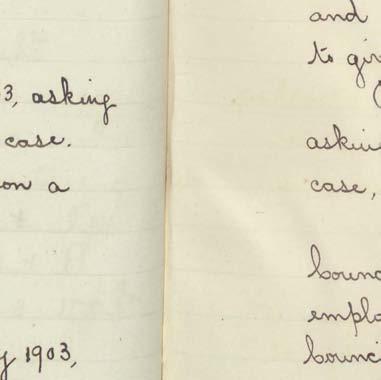 3, asking
case.
on a
y 1903,
and
to giv
askin
case,
bounc
emplo
bounci